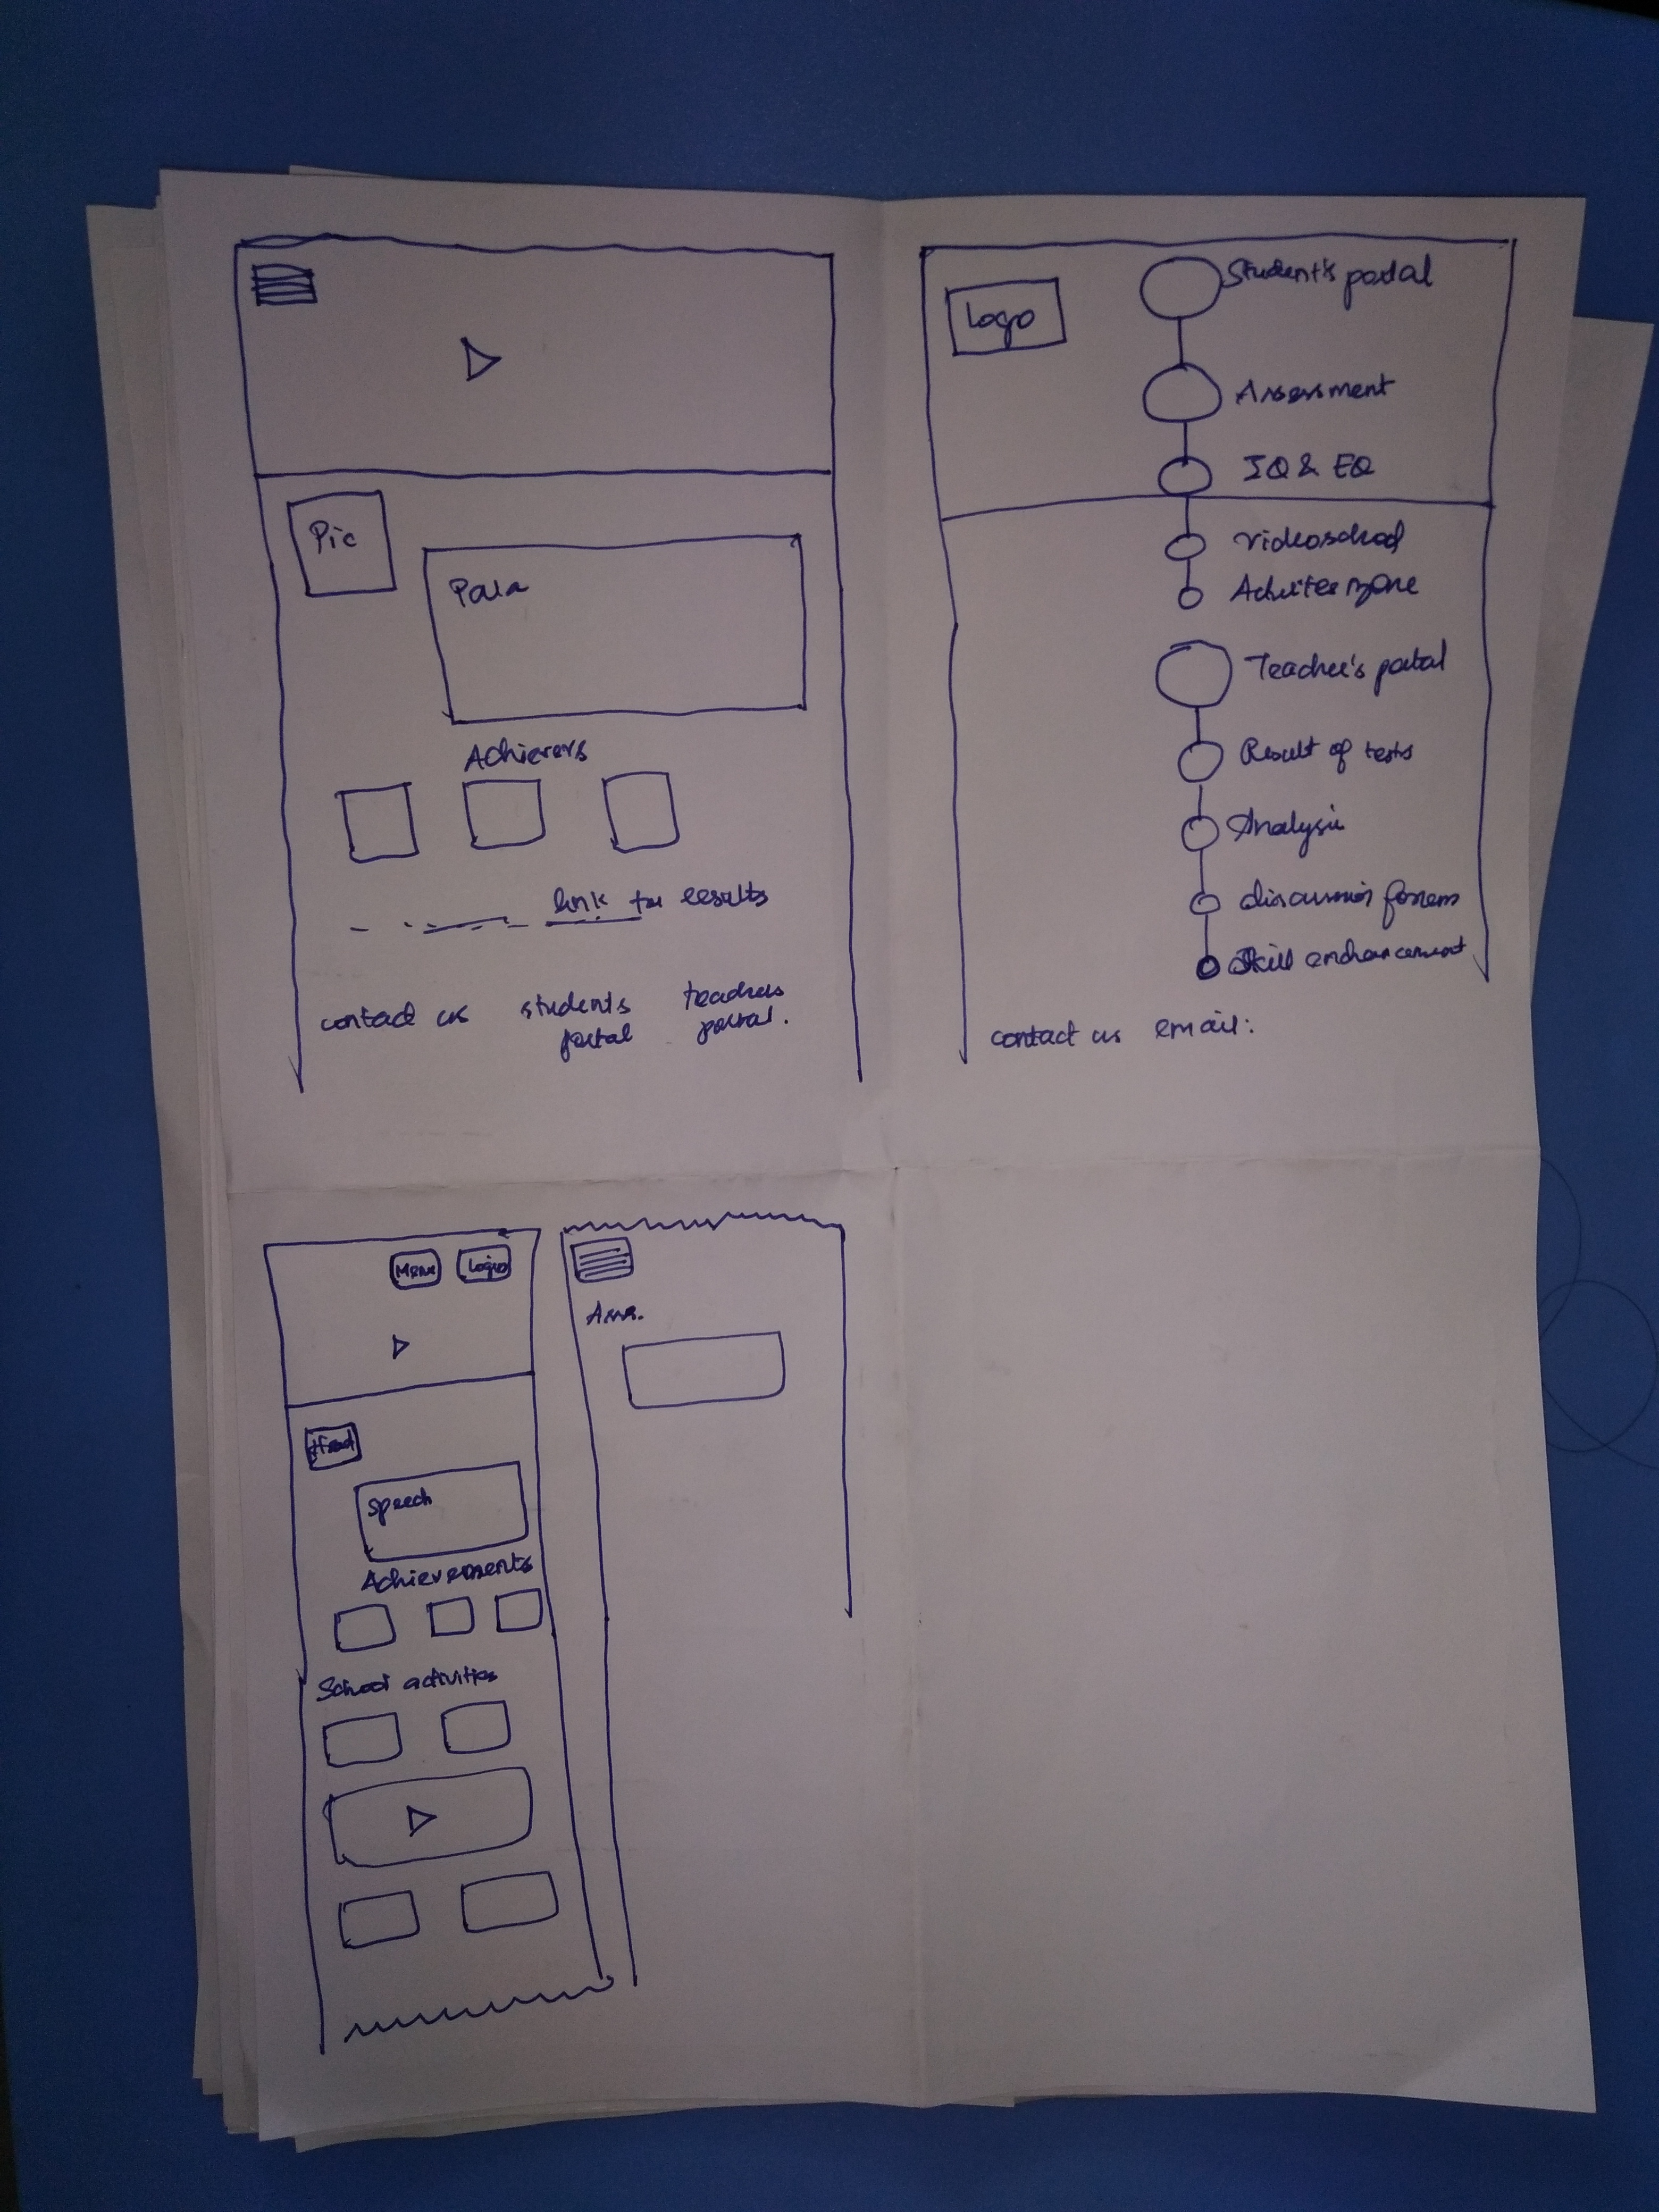 Pic
Para
Achievers
link for results
contact us students portal teachers portal.
Logo
Student's portal
Assessment
IQ & EQ
Teacher's portal
Result of tests
Analysis
discussion
Skill enhancement
contact us email:
Menu Login
Head
Speech
Achievements
School activities